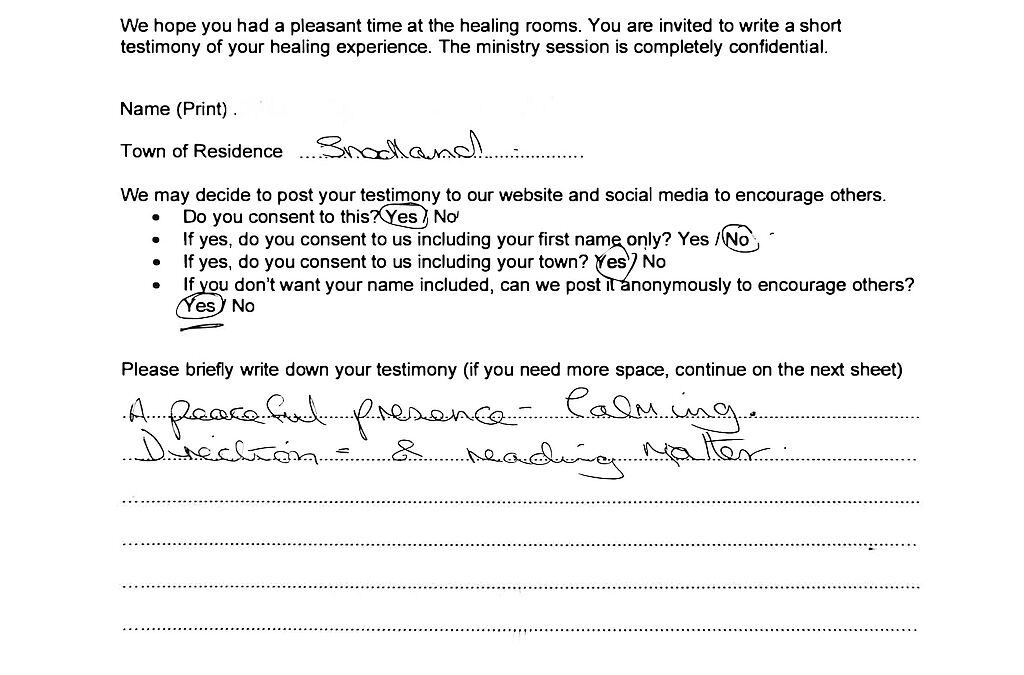 We hope you had a pleasant time at the healing rooms. You are invited to write a short
testimony of your healing experience. The ministry session is completely confidential.
Name (Print) .
Town of Residence ....Snodland...............
We may decide to post your testimony to our website and social media to encourage others.
• Do you consent to this? Yes / No
• If yes, do you consent to us including your first name only? Yes / No
• If yes, do you consent to us including your town? Yes / No
• If you don't want your name included, can we post it anonymously to encourage others?
Yes / No
Please briefly write down your testimony (if you need more space, continue on the next sheet)
A peaceful presence - Calming.
Direction - & reading matter.